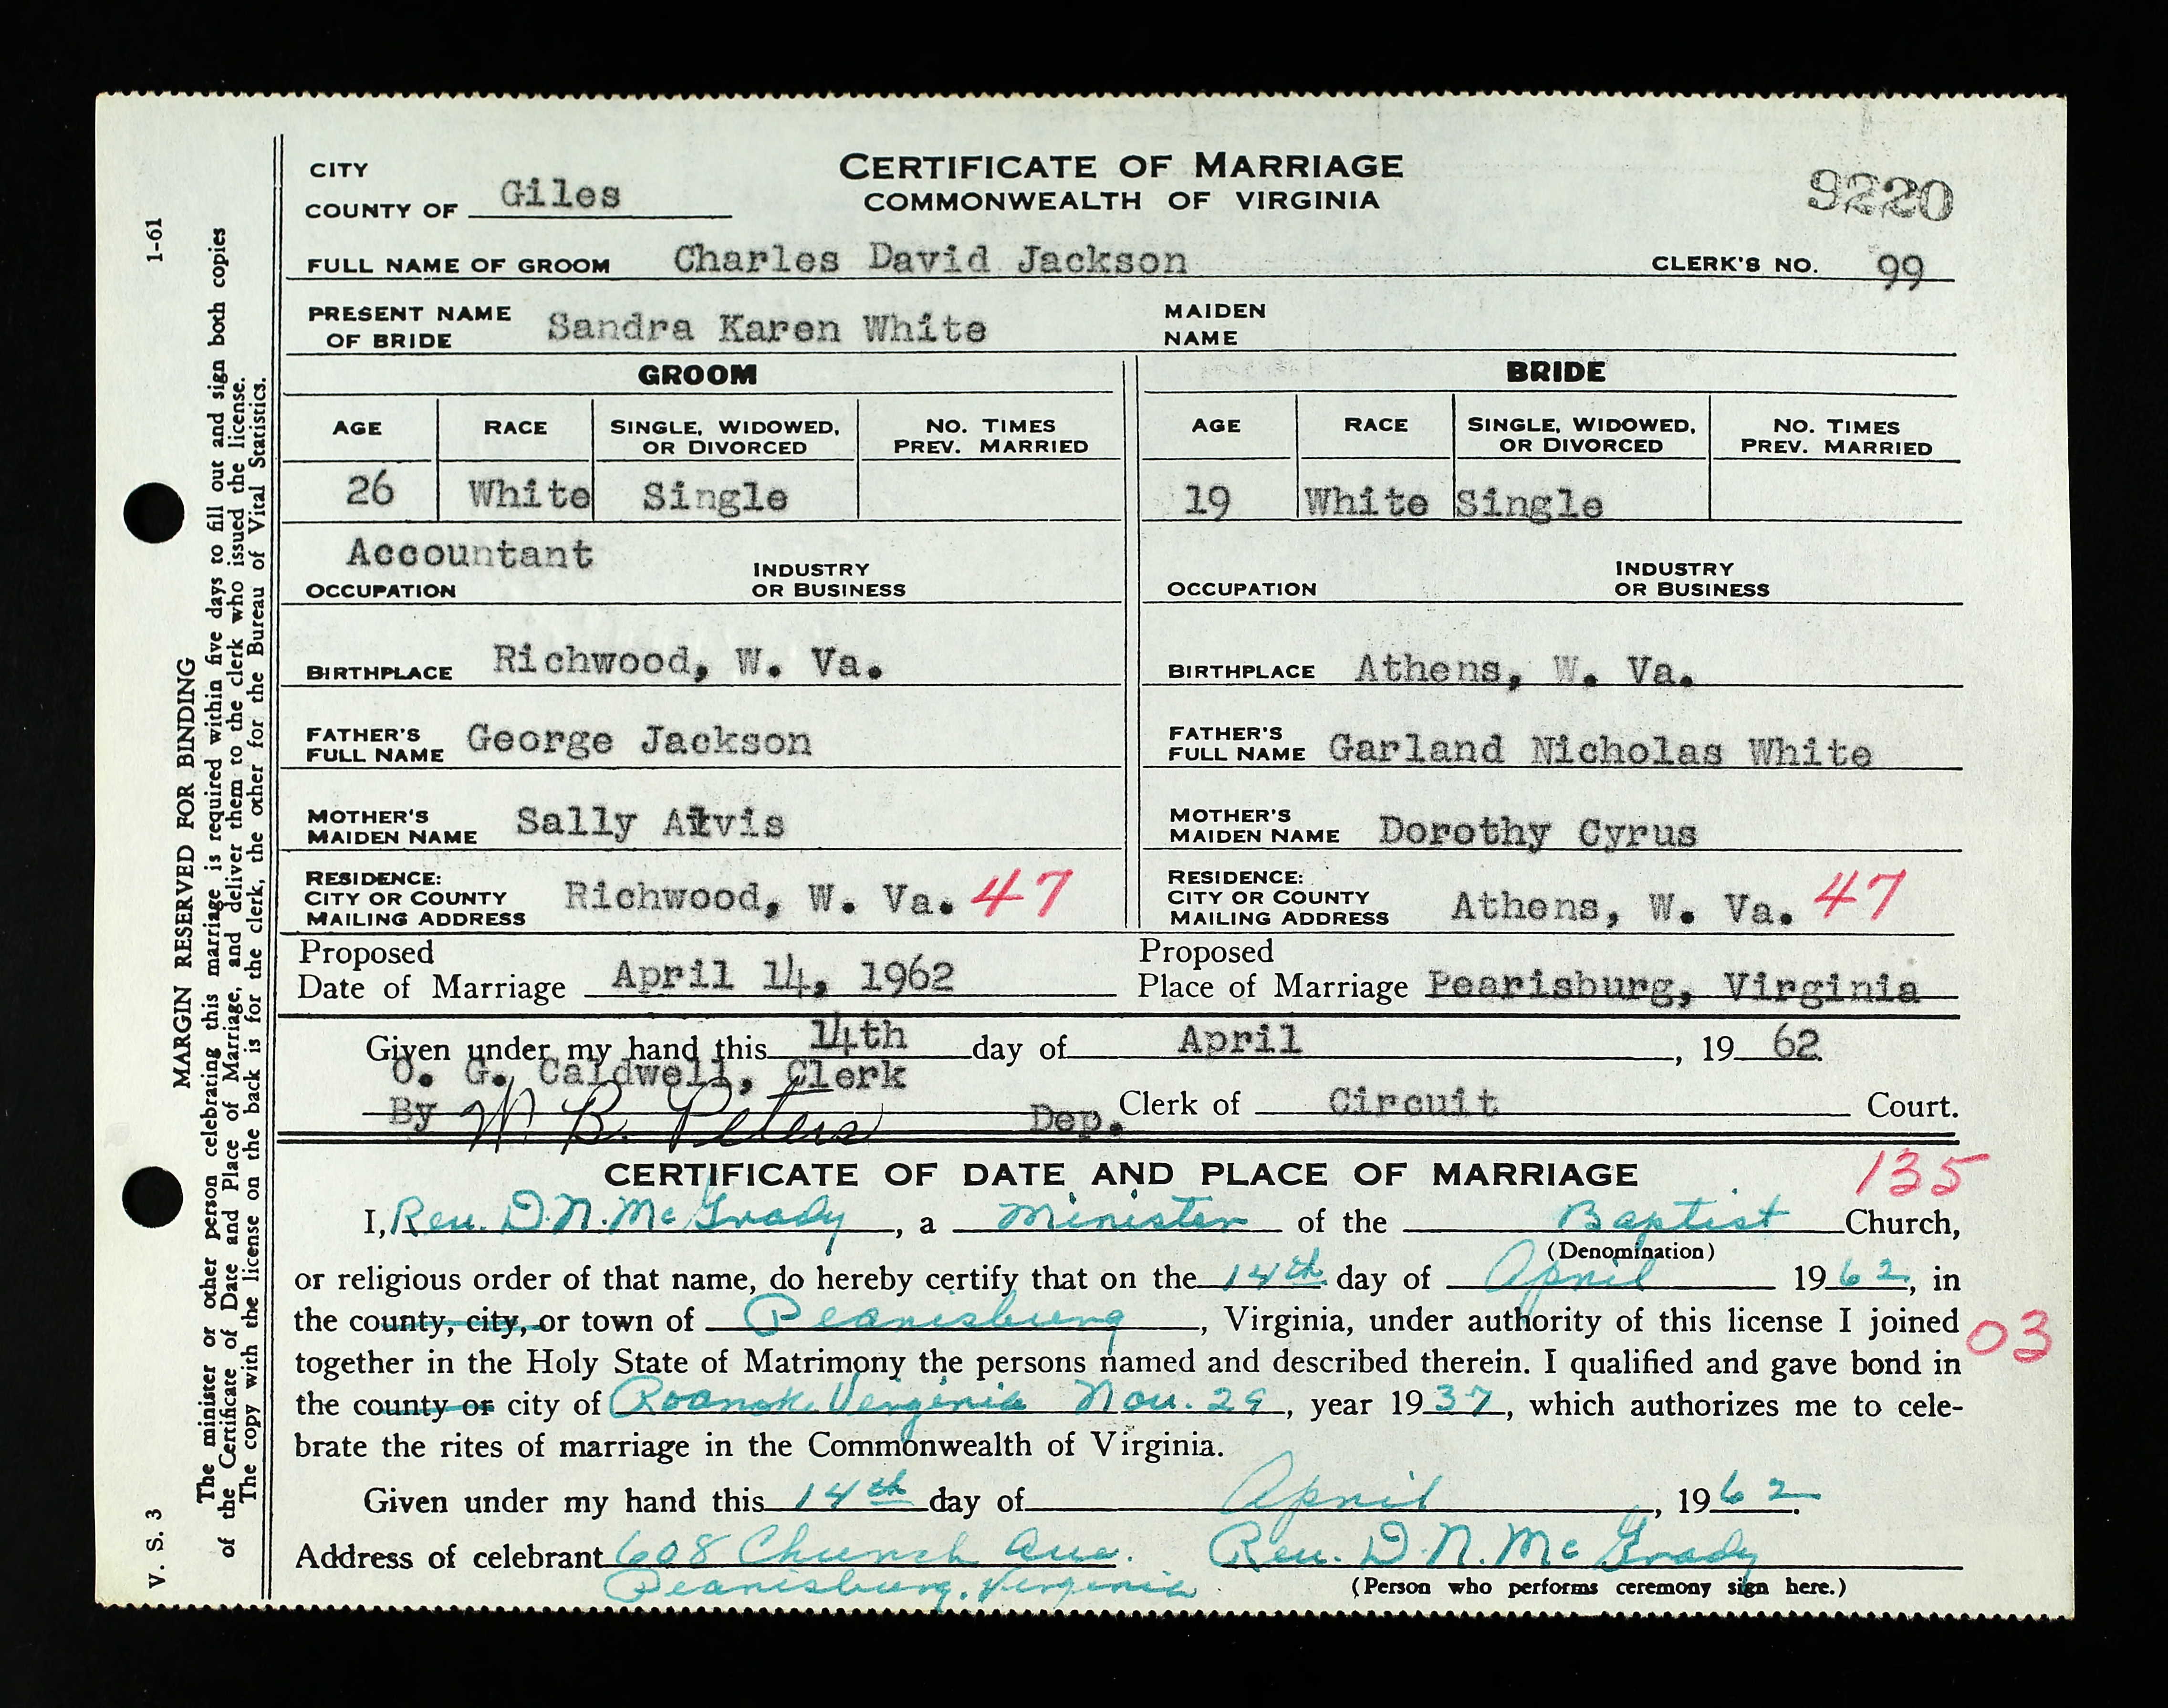 CITY
COUNTY OF Giles
CERTIFICATE OF MARRIAGE
COMMONWEALTH OF VIRGINIA
9220
FULL NAME OF GROOM Charles David Jackson CLERK'S NO. 99
PRESENT NAME OF BRIDE Sandra Karen White MAIDEN NAME
GROOM BRIDE
AGE RACE SINGLE, WIDOWED, OR DIVORCED NO. TIMES PREV. MARRIED AGE RACE SINGLE, WIDOWED, OR DIVORCED NO. TIMES PREV. MARRIED
26 White Single 19 White Single
Accountant
OCCUPATION INDUSTRY OR BUSINESS OCCUPATION INDUSTRY OR BUSINESS
BIRTHPLACE Richwood, W. Va. BIRTHPLACE Athens, W. Va.
FATHER'S FULL NAME George Jackson FATHER'S FULL NAME Garland Nicholas White
MOTHER'S MAIDEN NAME Sally MOTHER'S MAIDEN NAME Dorothy Cyrus
RESIDENCE: CITY OR COUNTY MAILING ADDRESS Richwood, W. Va. 47 RESIDENCE: CITY OR COUNTY MAILING ADDRESS Athens, W. Va. 47
Proposed Date of Marriage April 14, 1962 Proposed Place of Marriage Pearisburg, Virginia
Given under my hand this 14th day of April, 1962
O. G. Caldwell, Clerk
By M B. Peters Dep. Clerk of Circuit Court.
CERTIFICATE OF DATE AND PLACE OF MARRIAGE 135
I, Rev. D. N. McGrady, a Minister of the Baptist Church,
(Denomination)
or religious order of that name, do hereby certify that on the 14th day of April 1962, in
the county, city, or town of Pearisburg, Virginia, under authority of this license I joined 03
together in the Holy State of Matrimony the persons named and described therein. I qualified and gave bond in
the county or city of Roanoke Virginia Nov. 29, year 1937, which authorizes me to cele-
brate the rites of marriage in the Commonwealth of Virginia.
Given under my hand this 14th day of April, 1962.
Address of celebrant 608 Church Ave. Rev. D. N. McGrady
Pearisburg, Virginia (Person who performs ceremony sign here.)
V. S. 3 MARGIN RESERVED FOR BINDING 1-61
The minister or other person celebrating this marriage is required within five days to fill out and sign both copies
of the Certificate of Date and Place of Marriage, and deliver them to the clerk who issued the license.
The copy with the license on the back is for the clerk, the other for the Bureau of Vital Statistics.